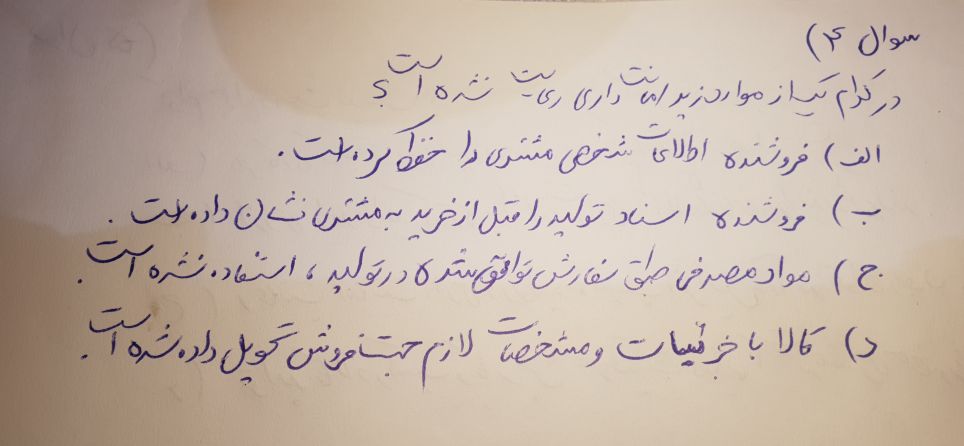 سوال ۴)
در کدام یک از موارد زیر امانت داری رعایت نشده است؟
الف) فروشنده اطلاعات شخصی مشتری را حفظ کرده است.
ب) فروشنده اسناد تولید را قبل از خرید به مشتری نشان داده است.
ج) مواد مصرفی طبق سفارش توافق شده در تولید، استفاده نشده است.
د) کالا با جزئیات و مشخصات لازم جهت فروش تحویل داده شده است.